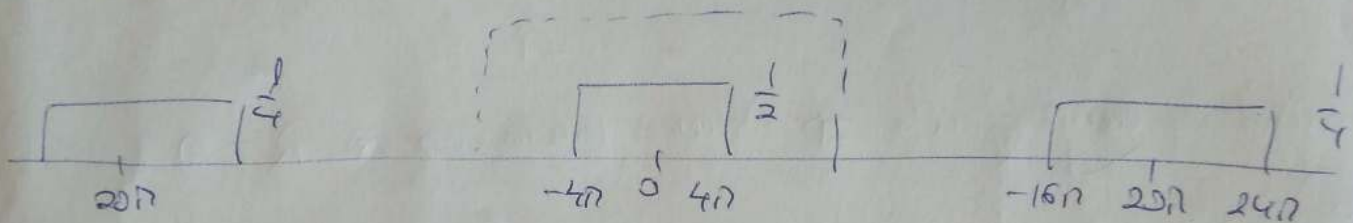 1/4 1/2 1/4
20π -4π 0 4π -16π 20π 24π